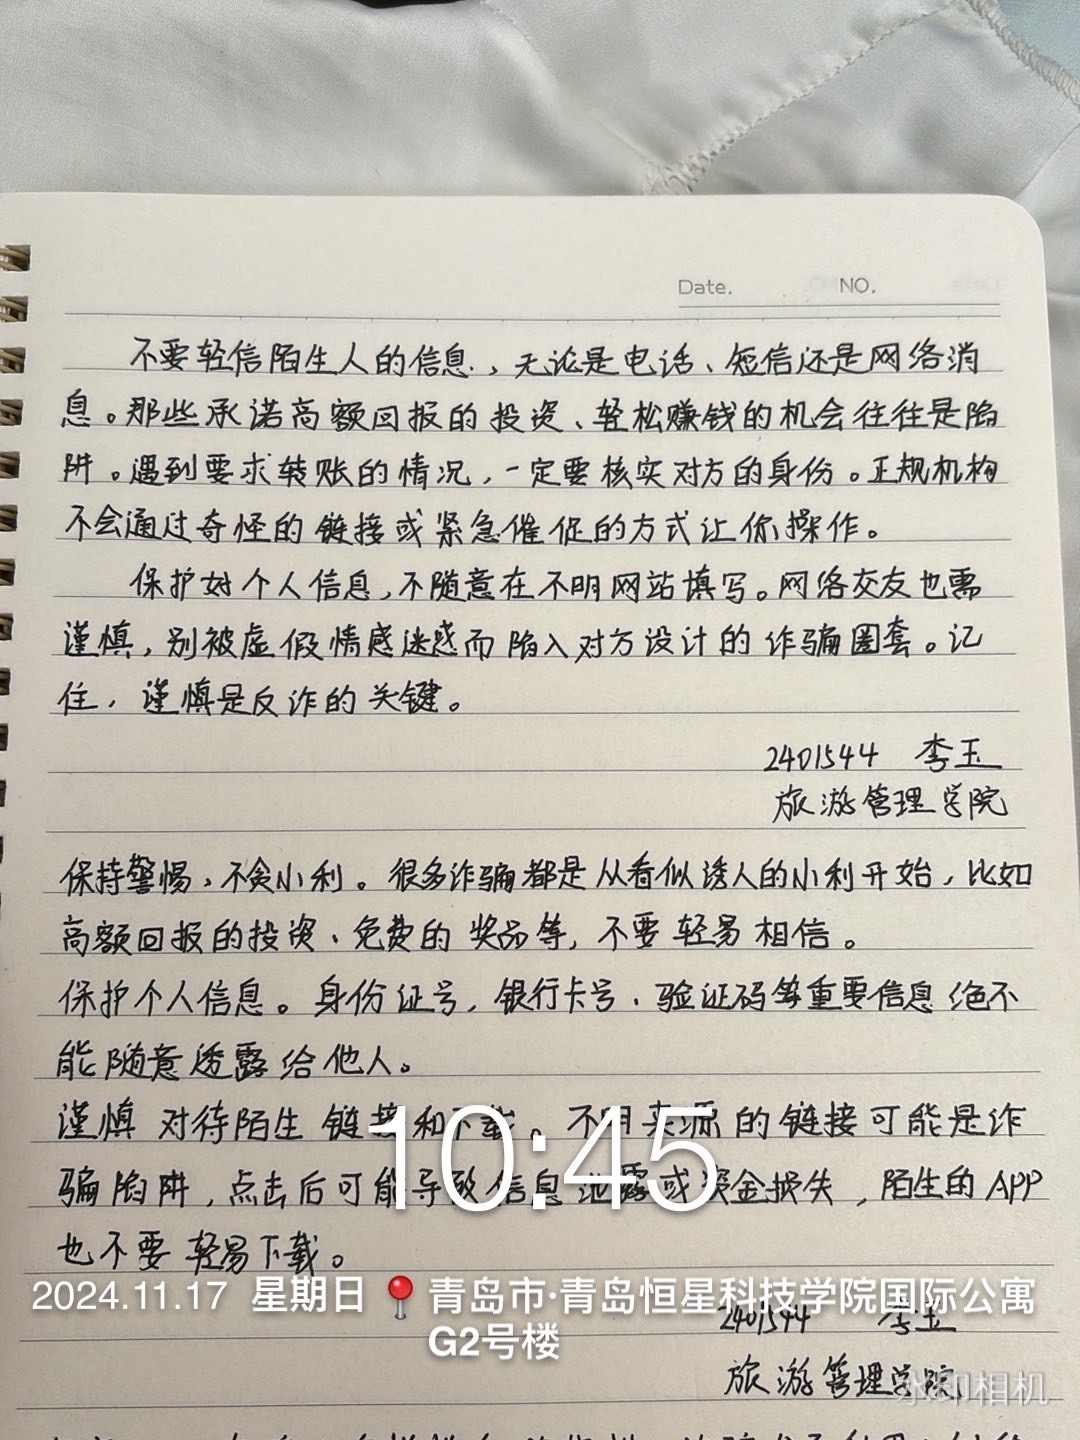 Date. NO.
不要轻信陌生人的信息，无论是电话、短信还是网络消
息。那些承诺高额回报的投资、轻松赚钱的机会往往是陷
阱。遇到要求转账的情况，一定要核实对方的身份。正规机构
不会通过奇怪的链接或紧急催促的方式让你操作。
保护好个人信息，不随意在不明网站填写。网络交友也需
谨慎，别被虚假情感迷惑而陷入对方设计的诈骗圈套。记
住，谨慎是反诈的关键。
2401544 李玉
旅游管理学院
保持警惕，不贪小利。很多诈骗都是从看似诱人的小利开始，比如
高额回报的投资、免费的奖品等，不要轻易相信。
保护个人信息。身份证号，银行卡号、验证码等重要信息绝不
能随意透露给他人。
谨慎对待陌生链接和下载。不明来源的链接可能是诈
骗陷阱，点击后可能导致信息泄露或资金损失，陌生的APP
也不要轻易下载。
10:45
2024.11.17 星期日 青岛市·青岛恒星科技学院国际公寓
G2号楼
2401544 李玉
旅游管理学院
水印相机